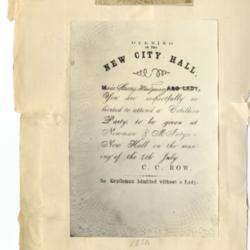 OPENING
OF THE
NEW CITY HALL,
AND LADY,
You are respectfully so-
licited to attend a Cotillion
Party, to be given at
Newman &
New Hall on the eve-
ning of the 4th July.
C. C. ROW.
No Gentleman Admitted without a Lady.